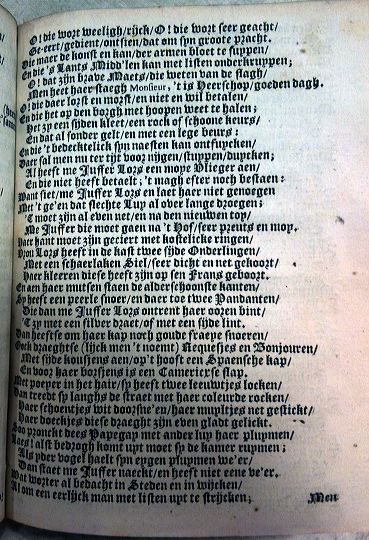 O! die wort weeligh/rijck/O! die wort seer geacht/
Ge-eert/gedient/ontsien/dat om syn groote pracht.
Die maer de konst en kan/der armen bloet te suppen/
En die 's Lants Midd'len kan met listen onderkruppen;
O! dat zijn brave Maets/die weten van de slagh/
Men heet haer staegh Monsieur, 't is Heerschop/goeden dagh.
O! die daer lorst en morst/en niet en wil betalen/
En die het op den borgh met hoopen weet te halen;
Het zy een sijden kleet/een rock of schoone keurs/
En dat al sonder gelt/en met een lege beurs:
En die 't bedecktelick syn naesten kan ontfutcken/
Daer sal men nu ter tijt voor nijgen/stuppen/duycken;
Al heeft me Juffer Lors een mope Vlieger aen/
En die niet heeft betaelt; 't magh efter noch bestaen:
Want siet/me Juffer Lors en laet haer niet genoegen
Met 't ge'en dat slechte Luy al over lange droegen;
'T moet zijn al even net/en na den nieuwen toy/
Me Juffer die moet gaen na 't Hof/seer preuts en moy.
Haer hant moet zijn geciert met kostelicke ringen/
Vrou Lors heeft in de kast twee sijde Onderlingen/
Met een schaerlaken Siel/seer dicht en net gekoort/
Haer kleeren diese heeft zijn op sen Frans geboort.
En aen haer mutsen staen de alderschoonste kanten/
Sy heeft een peerle snoer/en daer toe twee Pandanten/
Die dan me Juffer Lors ontrent haer ooren bint/
'T zy met een silver draet/of met een sijde lint.
Dan heeftse om haer kap noch goude fraepe snoeren/
Oock draeghtse (sijck men 't noemt) Requesjes en Bonjouren/
Met sijde kousjens aen/op't hooft een Spaensche kap/
En voor haer borsjens is een Camericxse slap.
Met poeper in het hair/sy heeft twee leeuwtjes locken/
Dan treedt sy langhs de straet met haer coleurde rocken/
Haer schoentjes wit doorsne'en/haer muyltjes net gestickt/
Haer doeckjes diese draeght zijn even gladt gelickt.
Soo pronckt dees Papegay met ander luy haer pluymen/
Laes! alst bedrogh komt uyt moet sy de kamer ruymen;
Als yder vogel haelt syn eygen pluymen we'er/
Dan staet me Juffer naeckt/en heeft niet eene ve'er.
Wat worter al bedacht in Steden en in wijcken/
Al om een eerlijck man met listen uyt te strijcken;
Men